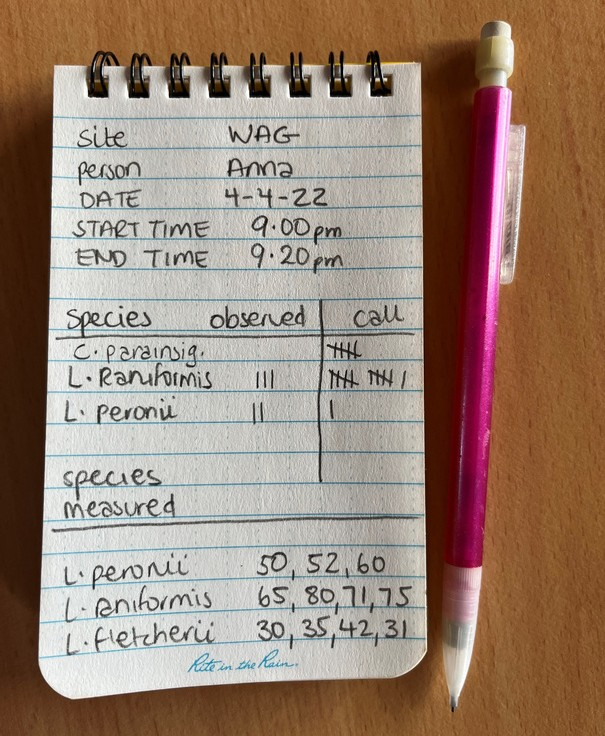 site WAG
person Anna
DATE 4-4-22
START TIME 9.00pm
END TIME 9.20pm
Species observed call
C. parainsig. 卌
L. Raniformis ||| 卌 卌 |
L. peronii || |
species
measured
L. peronii 50, 52, 60
L. Raniformis 65, 80, 71, 75
L. fletcherii 30, 35, 42, 31
Rite in the Rain.